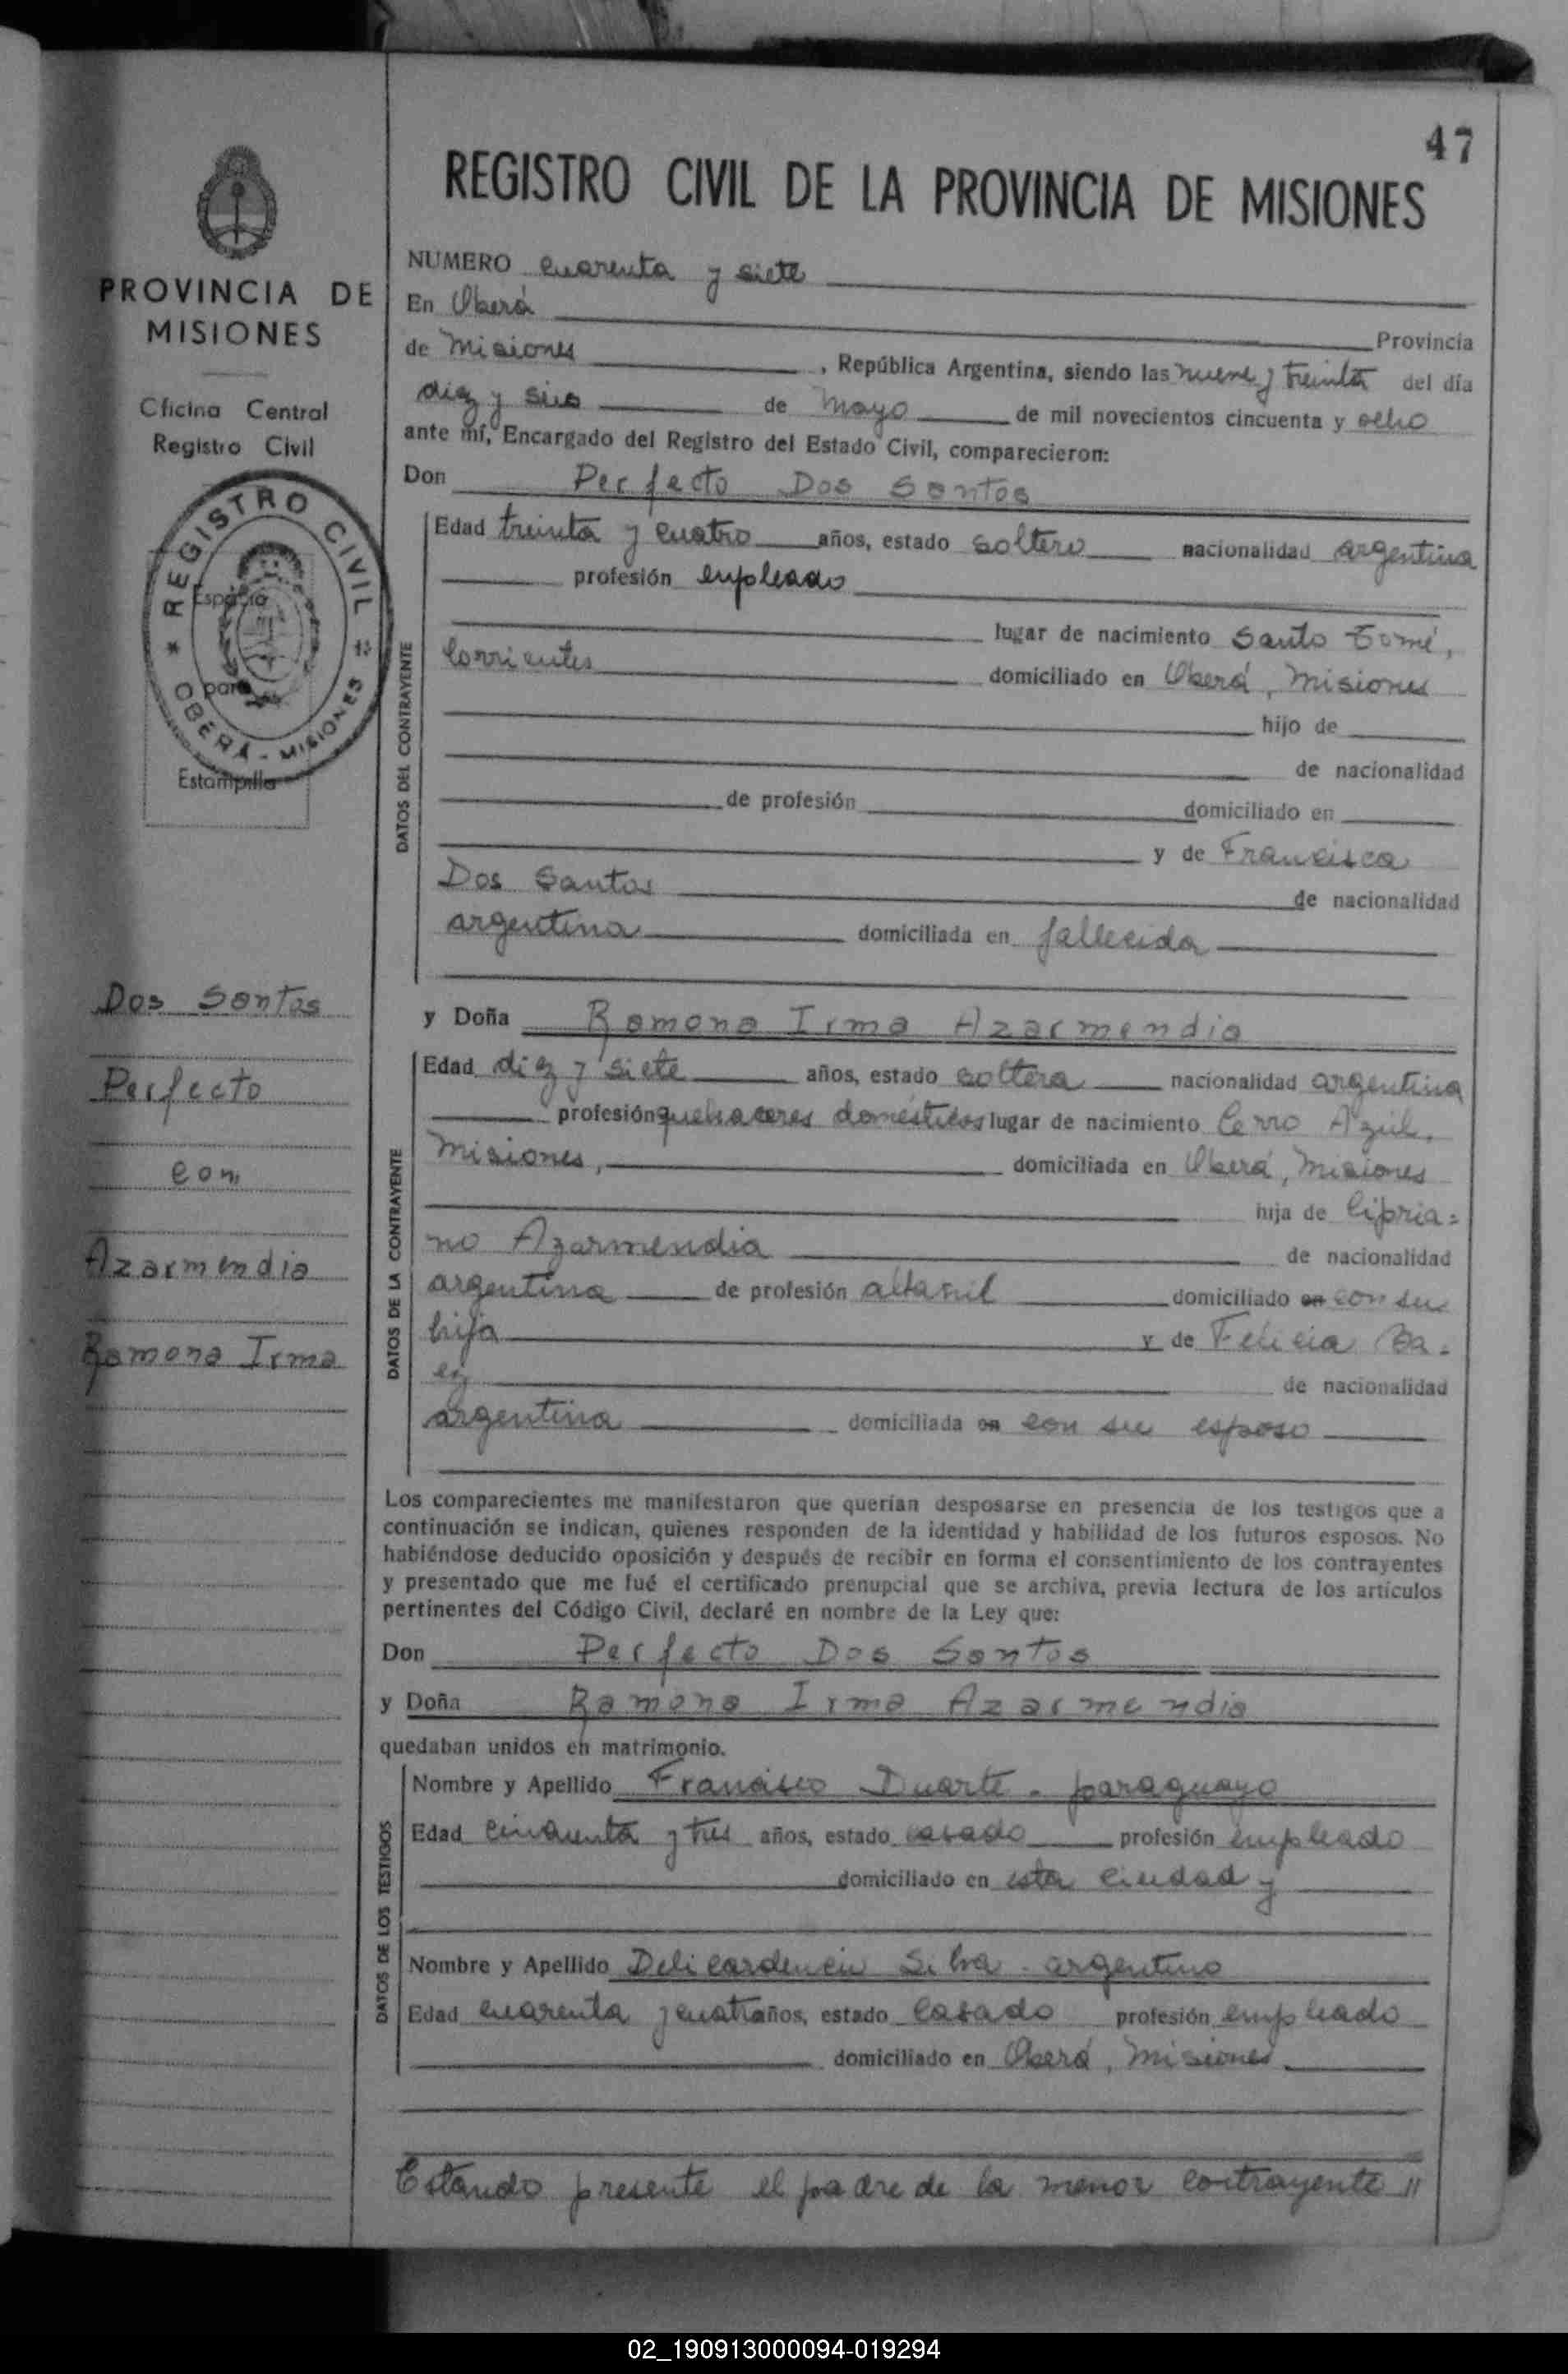 47
REGISTRO CIVIL DE LA PROVINCIA DE MISIONES
PROVINCIA DE
MISIONES
Oficina Central
Registro Civil
* REGISTRO CIVIL *
OBERÁ - MISIONES
Espacio
para
Estampilla
Dos Santos
Perfecto
con
Azarmendia
Ramona Irma
NUMERO cuarenta y siete
En Oberá Provincia
de Misiones, República Argentina, siendo las nueve y treinta del día
diez y seis de Mayo de mil novecientos cincuenta y ocho
ante mí, Encargado del Registro del Estado Civil, comparecieron:
Don Perfecto Dos Santos
DATOS DEL CONTRAYENTE
Edad treinta y cuatro años, estado soltero nacionalidad argentina
profesión empleado
lugar de nacimiento Santo Tomé,
Corrientes domiciliado en Oberá, Misiones
hijo de
de nacionalidad
de profesión domiciliado en
y de Francisca
Dos Santos de nacionalidad
argentina domiciliada en fallecida
y Doña Ramona Irma Azarmendia
DATOS DE LA CONTRAYENTE
Edad diez y siete años, estado soltera nacionalidad argentina
profesión quehaceres domésticos lugar de nacimiento Cerro Azul,
Misiones, domiciliada en Oberá, Misiones
hija de Cipria=
no Azarmendia de nacionalidad
argentina de profesión albañil domiciliado en con su
hija y de Felicia Ba=
ez de nacionalidad
argentina domiciliada en con su esposo
Los comparecientes me manifestaron que querían desposarse en presencia de los testigos que a
continuación se indican, quienes responden de la identidad y habilidad de los futuros esposos. No
habiéndose deducido oposición y después de recibir en forma el consentimiento de los contrayentes
y presentado que me fué el certificado prenupcial que se archiva, previa lectura de los artículos
pertinentes del Código Civil, declaré en nombre de la Ley que:
Don Perfecto Dos Santos
y Doña Ramona Irma Azarmendia
quedaban unidos en matrimonio.
DATOS DE LOS TESTIGOS
Nombre y Apellido Francisco Duarte - paraguayo
Edad cincuenta y tres años, estado casado profesión empleado
domiciliado en esta ciudad y
Nombre y Apellido Silva - argentino
Edad cuarenta y cuatro años, estado casado profesión empleado
domiciliado en Oberá, Misiones
Estando presente el padre de la menor contrayente //
02_190913000094-019294